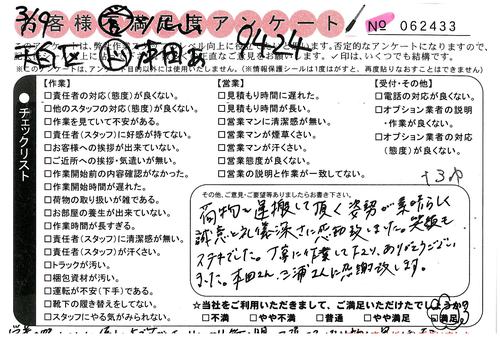 3/9
お客様満足度アンケート
No 062433
このアンケートは、弊社作業
否定的なアンケートになりますので、
ご意見お願いします。✓印は、いくつでも結構です。
9434
※このアンケートは、アンケート目的以外には使用いたしません。(※情報保護シールは1度はがすと、再度貼りなおすことはできません)
チェックリスト
【作業】
□責任者の対応(態度)が良くない。
□他のスタッフの対応(態度)が良くない。
□作業を見ていて不安がある。
□責任者(スタッフ)に好感が持てない。
□お客様への挨拶が出来ていない。
□ご近所への挨拶・気遣いが無い。
□作業開始前の内容確認がなかった。
□作業開始時間が遅れた。
□荷物の取り扱いが雑である。
□お部屋の養生が出来ていない。
□作業時間が長すぎる。
□責任者(スタッフ)に清潔感が無い。
□責任者(スタッフ)が汗くさい。
□トラックが汚い。
□梱包資材が汚い。
□運転が不安(下手)である。
□靴下の履き替えをしてない。
□スタッフにやる気がみられない。
【営業】
□見積もり時間に遅れた。
□見積もり時間が長い。
□営業マンに清潔感が無い。
□営業マンが煙草くさい。
□営業マンが汗くさい。
□営業態度が良くない。
□営業の説明と作業が一致してない。
【受付・その他】
□電話の対応が良くない。
□オプション業者の説明
・作業が良くない。
□オプション業者の対応
(態度)が良くない。
その他、ご意見・ご要望等ありましたらお書き下さい。
荷物を運搬して頂く姿勢が素晴らしく
誠意と礼儀深さに感動致しました。笑顔も
ステキでした。丁寧に作業して下さり、ありがとうござい
ました。本田さん、三浦さんに感謝致します。
☆当社をご利用いただきまして、ご満足いただけたでしょうか?
□不満 □やや不満 □普通 □やや満足 □満足